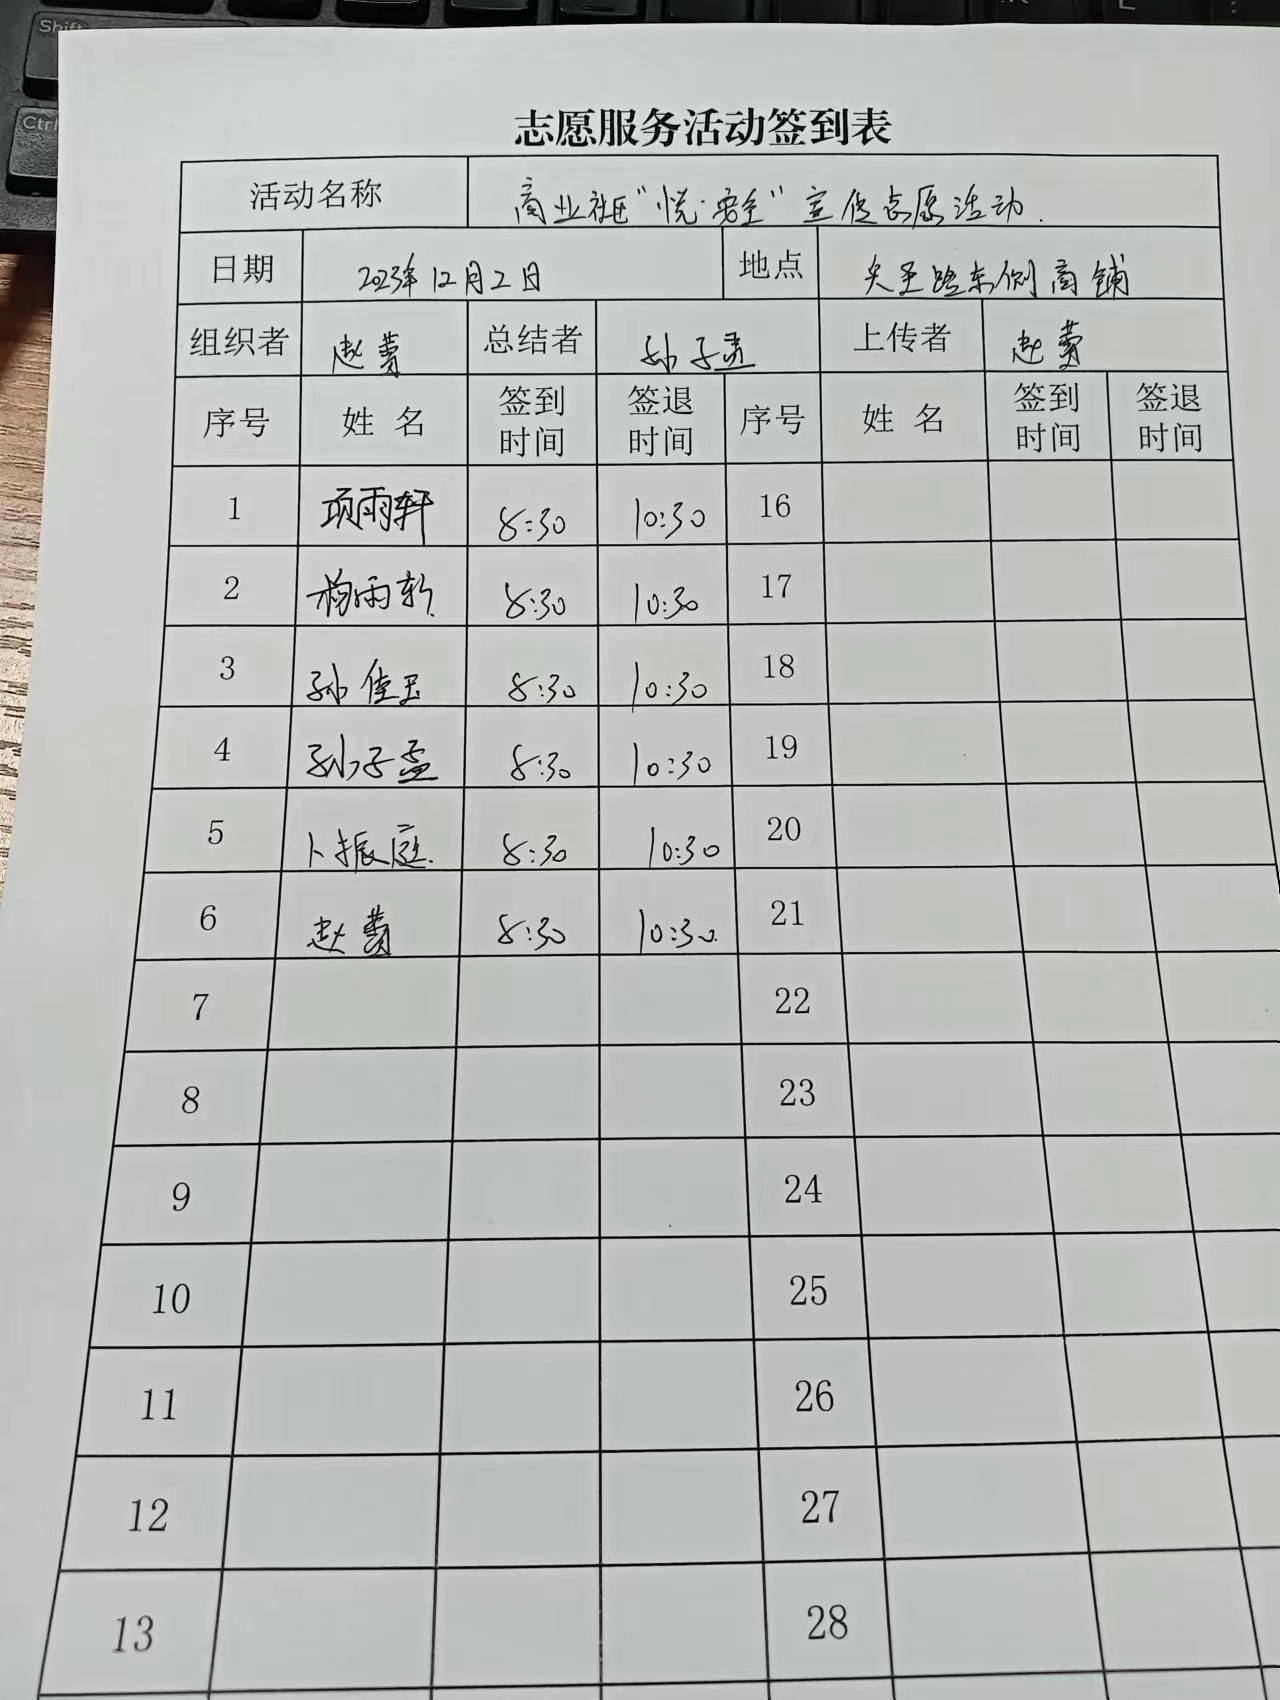 Shift
Ctrl
志愿服务活动签到表
活动名称 商业社区“悦·安全”宣传志愿活动.
日期 2023年12月2日 地点 东侧商铺
组织者 赵 总结者 孙子孟 上传者 赵
序号 姓名 签到时间 签退时间 序号 姓名 签到时间 签退时间
1 项雨轩 8:30 10:30 16
2 梅雨轩 8:30 10:30 17
3 孙佳玉 8:30 10:30 18
4 孙子孟 8:30 10:30 19
5 卜振庭. 8:30 10:30 20
6 赵 8:30 10:30. 21
7 22
8 23
9 24
10 25
11 26
12 27
13 28